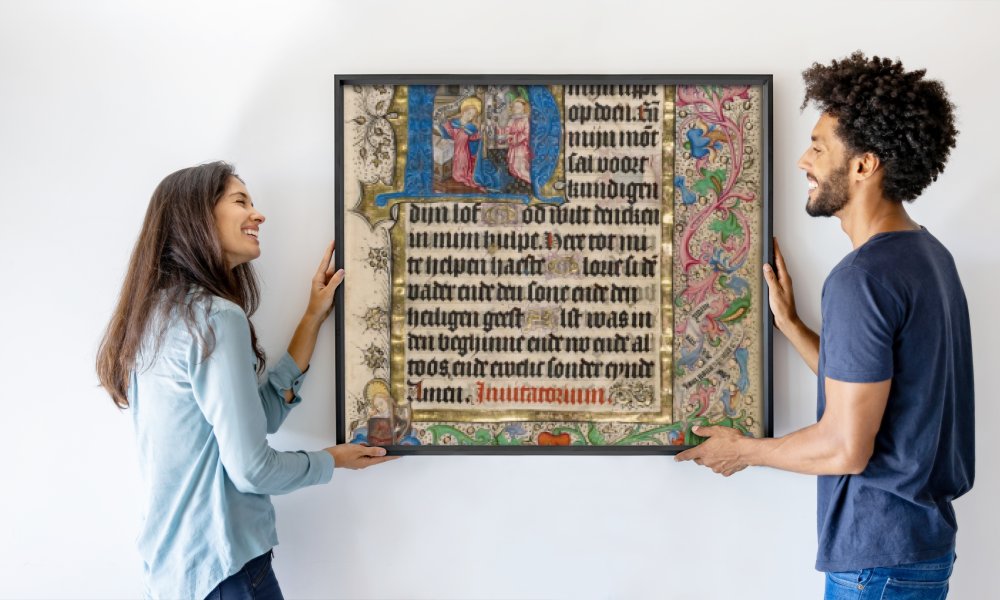 mijn lippē
op doen. En̄
mijn mōt
sal voorc
kundigen
dijn lof God wilt dencken
in mijn hulpe. Here tot mi
te helpen haeste Glorie si dē
vader ende den sone ende den
heiligen geest Alst was in
den beghinne ende nv ende al
toos, ende ewelic sonder eynde
Amen. Inuitatorium.